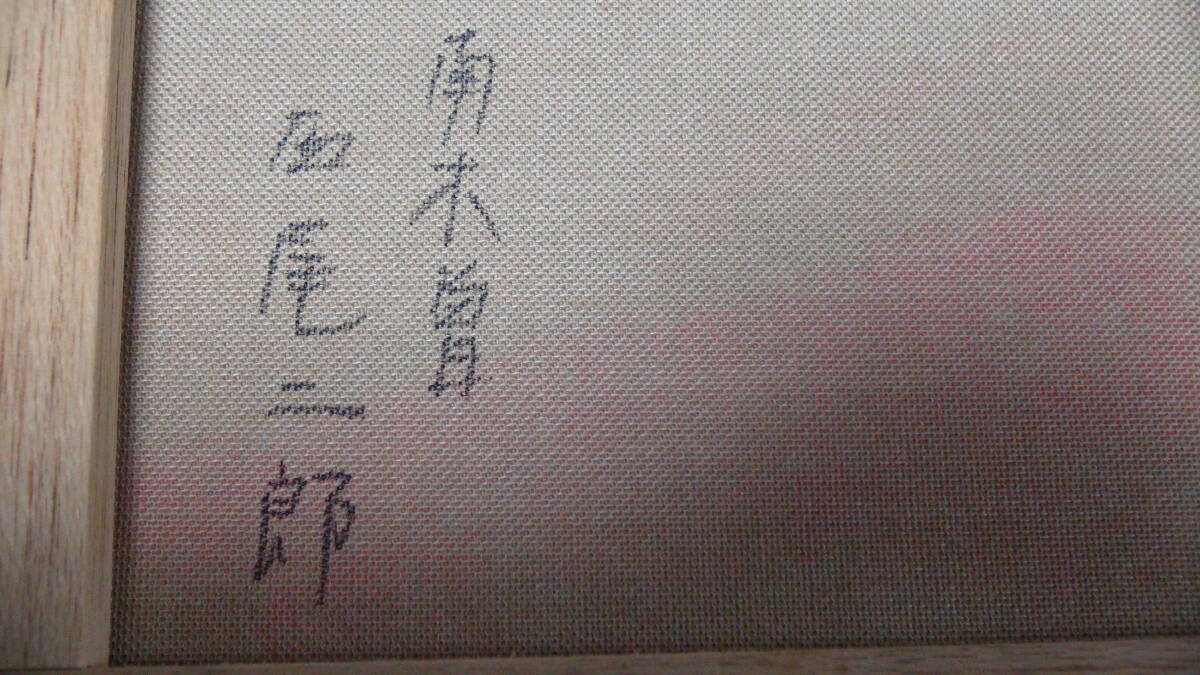 南木曽
西尾二郎